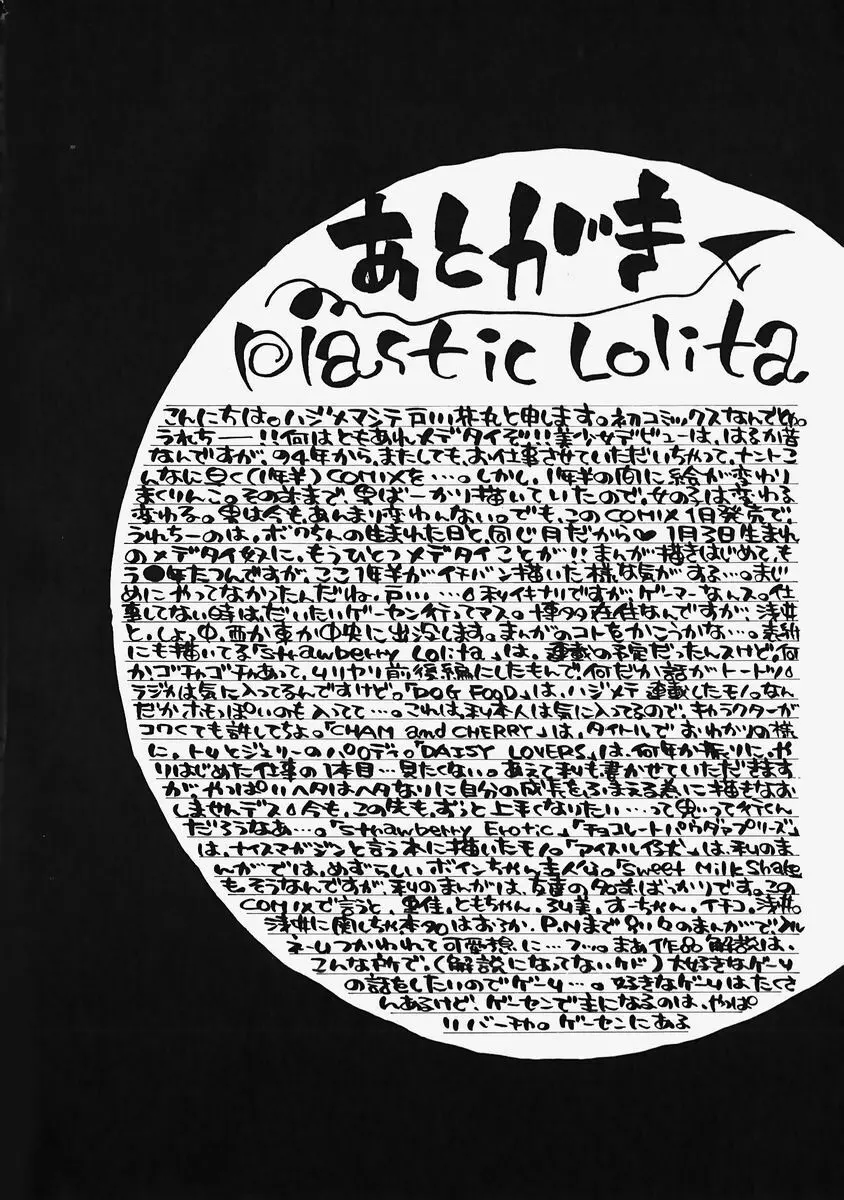 あとがき
Plastic Lolita
こんにちは。ハジメマシテ戸川 と申します。初コミックスなんでとね。
うれちー――!!何はともあれメデタイぞ!!美少女デビューは、はるか昔
なんですが、 4年から、またしても、お仕事させていただいちゃって、ナント
んなに早く(1年半)COMIXを…。しかし、1年半の間に絵が変わり
まくりんこ。その まで、男ばーかり描いていたので、女の子は変わる
変わる。男は今も、あんまり変わんない。でも、このCOMIX1月発売で、
うれちーのは、ボクちんの生まれた日と、同じ月だから♥ 1月3日生まれ
のメデタイ奴に、もうひとつメデタイことが!!まんが描きはじめて、も
う●年たつんですが、ここ1年半がイチバン描いた様な気がする…。まじ
めにやってなかったんだね、戸川……。 イキナリですがゲーマーなんス。仕
事してない時は、だいたいゲーセン行ってマス。博多在住なんですが、浅井
と、しょっ中、西か東か中央に出没します。まんがのコトをかこうかな…。表紙
にも描いてる「Strawberry Lolita」は、連載の予定だったんスけど、何
か、ゴチャゴチャあって、ムリヤリ前後編にしたもんで、何だか話がトートツ。
ラジオは気に入ってるんですけど。「DOG FOOD」は、ハジメテ連載したモノ。なん
だかホモっぽいのも入ってて…。これは、私本人は気に入ってるので、キャラクターが
コワくても許してちょ。「CHAM and CHERRY」は、タイトルでおわかりの様
に、トムとジェリーのパロディ。「DAISY LOVERS」は、何年か振りに、や
りはじめた仕事の1本目…見たくない。あえて私も書かせていただきます
が、やっぱりヘタはヘタなりに自分の成長をふまえる為に描きなお
しませんデス。今も、この先も、ずっと上手くなりたい…って思って行くん
だろうなあ…。「Strawberry Erotic」「チョコレートパウダァプリーズ」
は、ナイスマガジンと言う本に描いたモノ。「アイスル仔犬」は、私のま
んがでは、めずらしいボインちゃん主人公。「Sweet Milk Shake」
もそうなんですが、私のまんがは、友達の名前ばっかりです。この
COMIXで言うと、 、ともちゃん、 、すーちゃん、イチコ、浅井。
浅井に関しちゃ本名はおろか、P.Nまで別々のまんがで、
えームつかわれて可愛想に…フッ。まあ作品解説は、
こんな所で、(解説になってないケド)大好きなゲーム
の話をしたいのでゲーム…。好きなゲームはたくさ
んあるけど、ゲーセンで主になるのは、やっぱ
!!バーチャ。ゲーセンにある